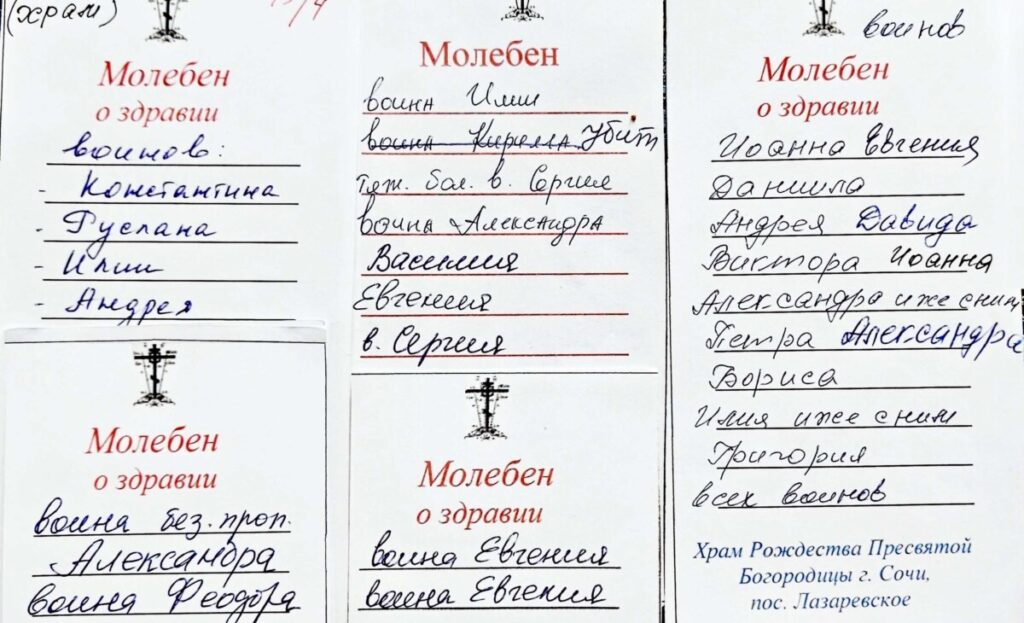 (храм)
Молебен
о здравии
воинов:
- Константина
- Руслана
- Илии
- Андрея
Молебен
о здравии
воина без. проп.
Александра
воина Феодора
Молебен
воина Илии
воина Кирилла Убит
тяж. бол. в. Сергия
воина Александра
Василия
Евгения
в. Сергия
Молебен
о здравии
воина Евгения
воина Евгения
воинов
Молебен
о здравии
Иоанна Евгения
Даниила
Андрея Давида
Виктора Иоанна
Александра иже с ним
Петра Александра
Бориса
Илия иже с ним
Григория
всех воинов
Храм Рождества Пресвятой
Богородицы г. Сочи,
пос. Лазаревское